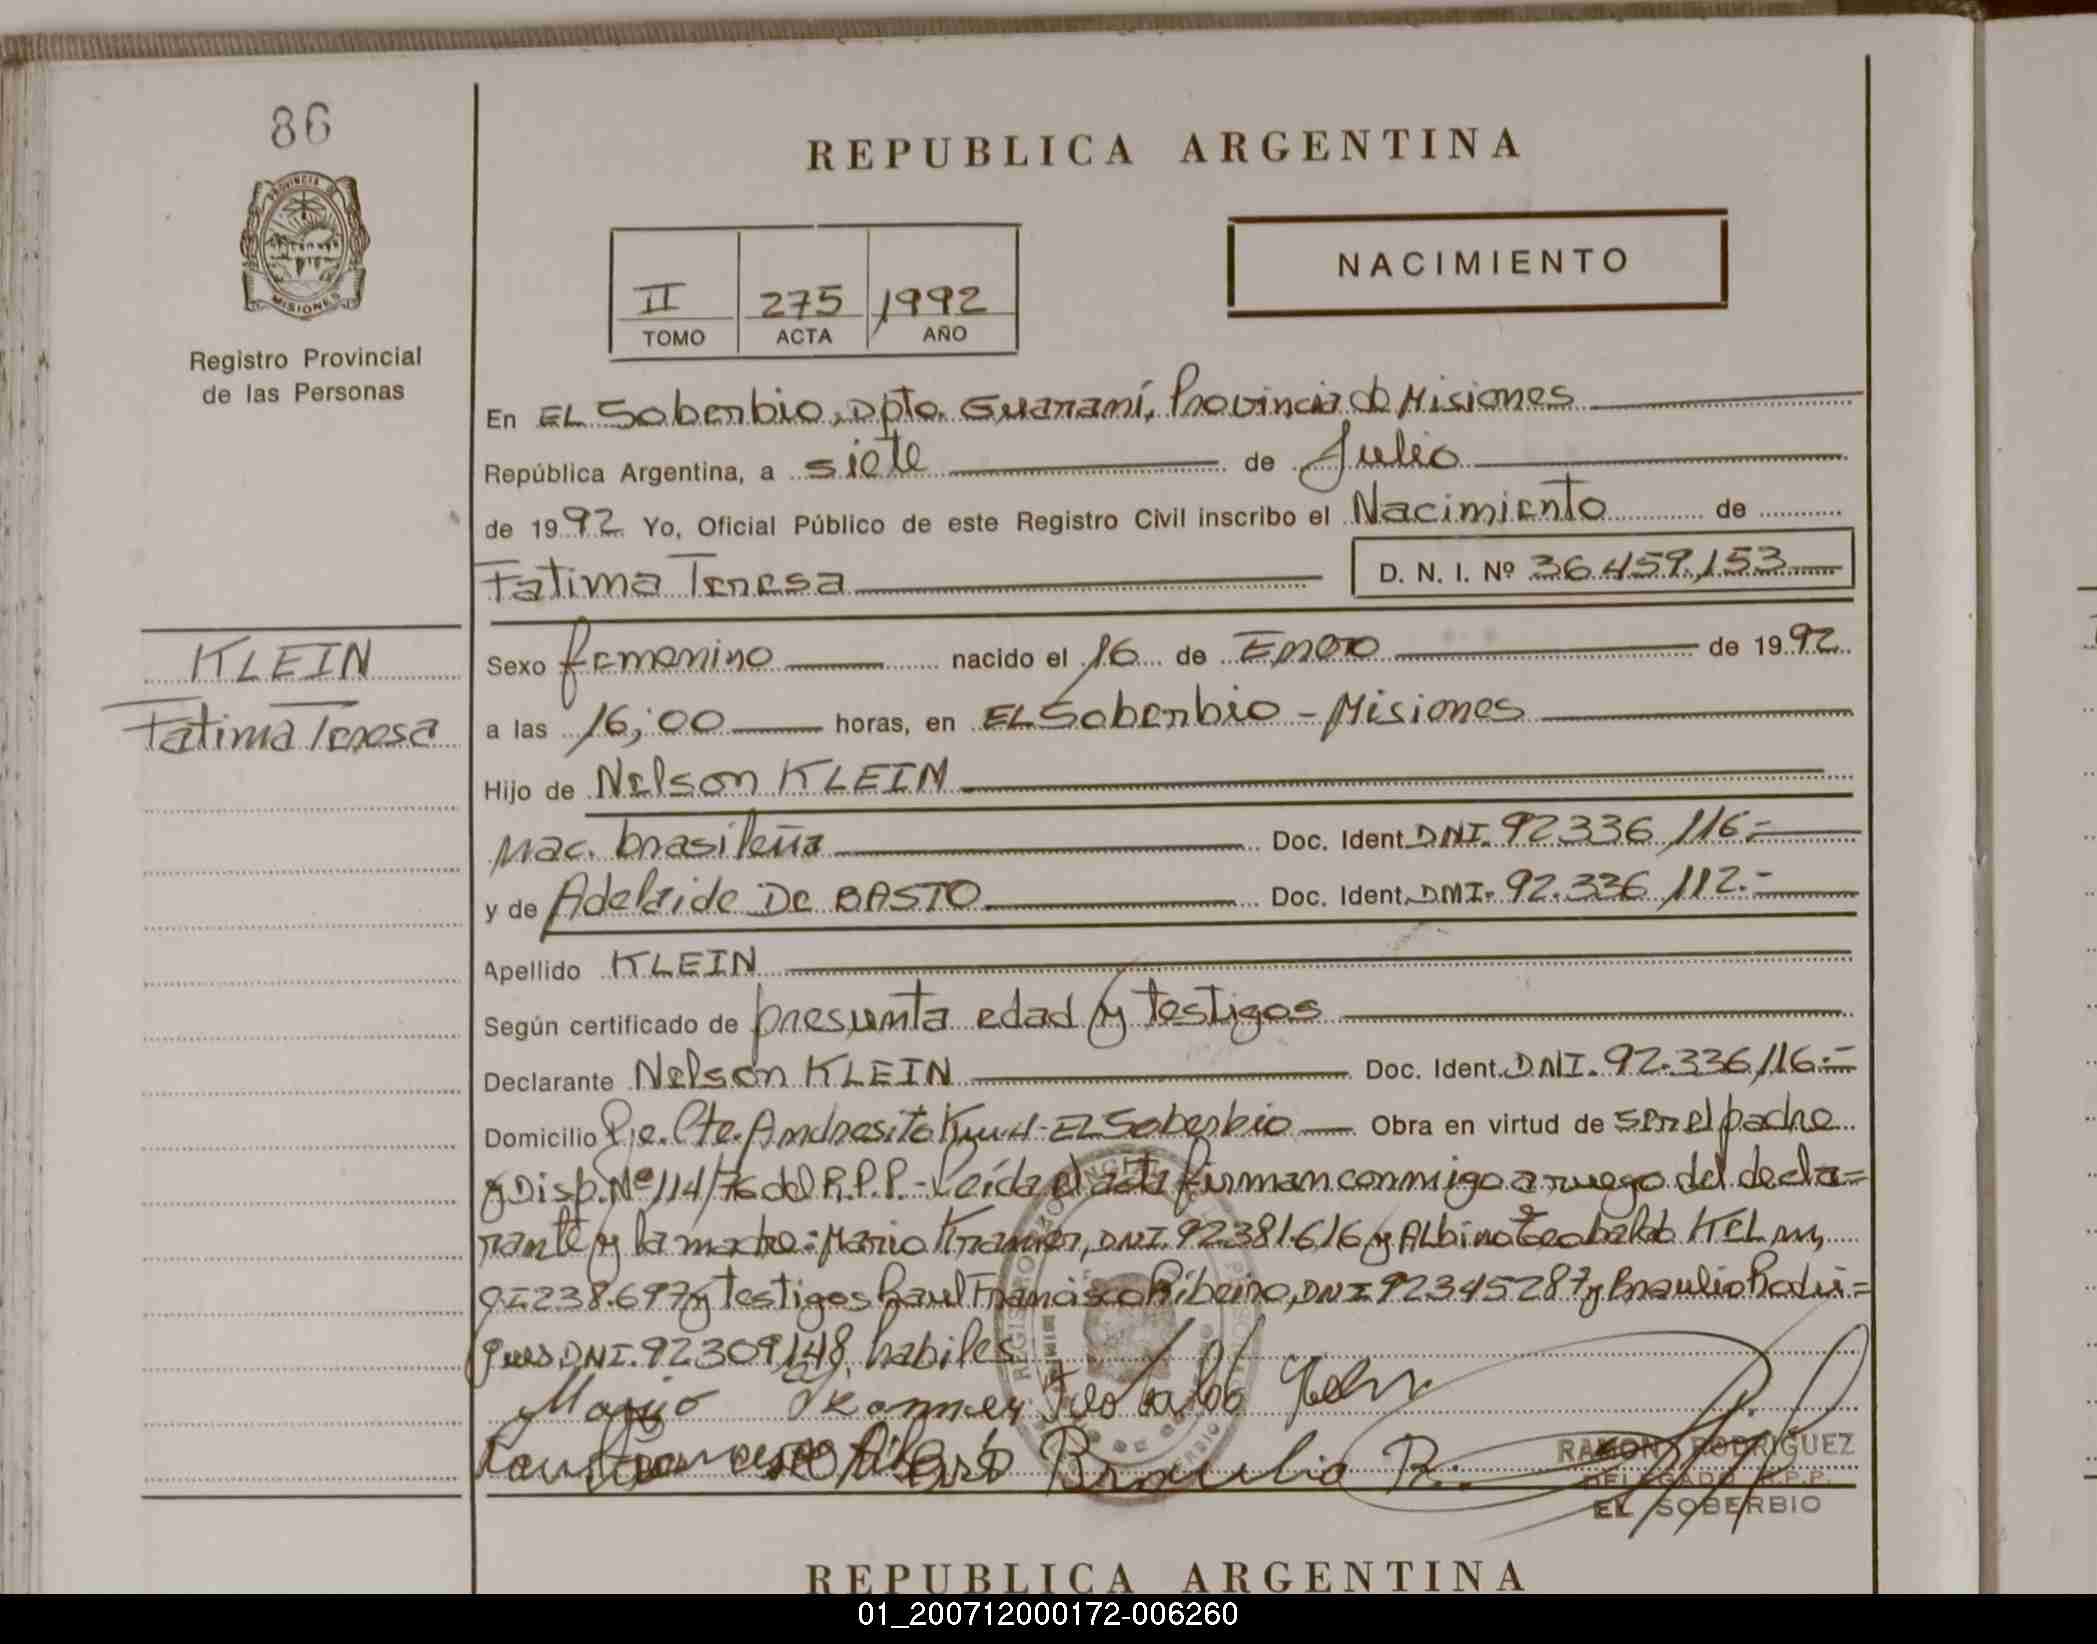 86
PROVINCIA DE
MISIONES
Registro Provincial
de las Personas
KLEIN
Fatima Teresa
REPUBLICA ARGENTINA
II 275 1992
TOMO ACTA AÑO
NACIMIENTO
En EL Soberbio, Dpto. Guaraní, Provincia de Misiones
República Argentina, a siete de Julio
de 1992 Yo, Oficial Público de este Registro Civil inscribo el Nacimiento de
Fatima Teresa D. N. I. Nº 36.459.153
Sexo femenino nacido el 16 de Enero de 1992
a las 16;00 horas, en EL Soberbio - Misiones
Hijo de Nelson KLEIN
Nac. brasileña Doc. Ident. DNI. 92.336.116.-
y de Adelaide De BASTO Doc. Ident. DNI. 92.336.112.-
Apellido KLEIN
Según certificado de presunta edad y testigos
Declarante Nelson KLEIN Doc. Ident. DNI. 92.336.116.-
Domicilio Pje. Cte. Andresito - EL Soberbio Obra en virtud de ser el padre
y Disp. Nº 114/76 del R.P.P.- Leída el acta firman conmigo a ruego del decla=
rante y la madre: Mario Kramer, DNI. 92.381.616 y Albino Teobaldo
CI 238.697 y testigos Raul Francisco Ribeiro, DNI 92345287 y Braulio Rodri=
gues DNI. 92309148, habiles
Mario Teobaldo
Raul Francisco Ribeiro Braulio R.
RAMON RODRIGUEZ
DELEGADO R.P.P.
EL SOBERBIO
REPUBLICA ARGENTINA
01_200712000172-006260